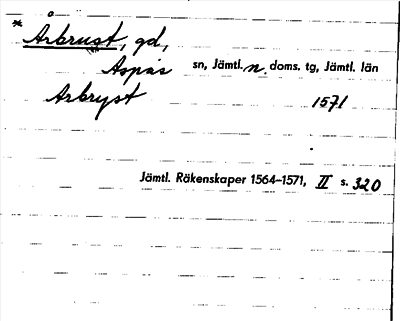 * Årbrust, gd,
Aspås sn, Jämtl. n. doms. tg, Jämtl. län
Arbryst 1571
Jämtl. Räkenskaper 1564–1571, II s. 320